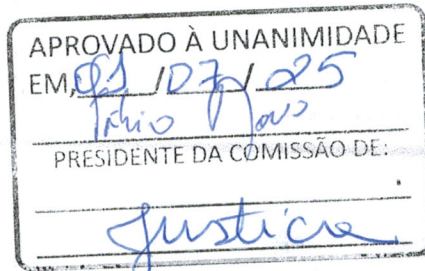 APROVADO À UNANIMIDADE
EM, 01 / 07 / 25
Fábio Novo
PRESIDENTE DA COMISSÃO DE:
Justiça